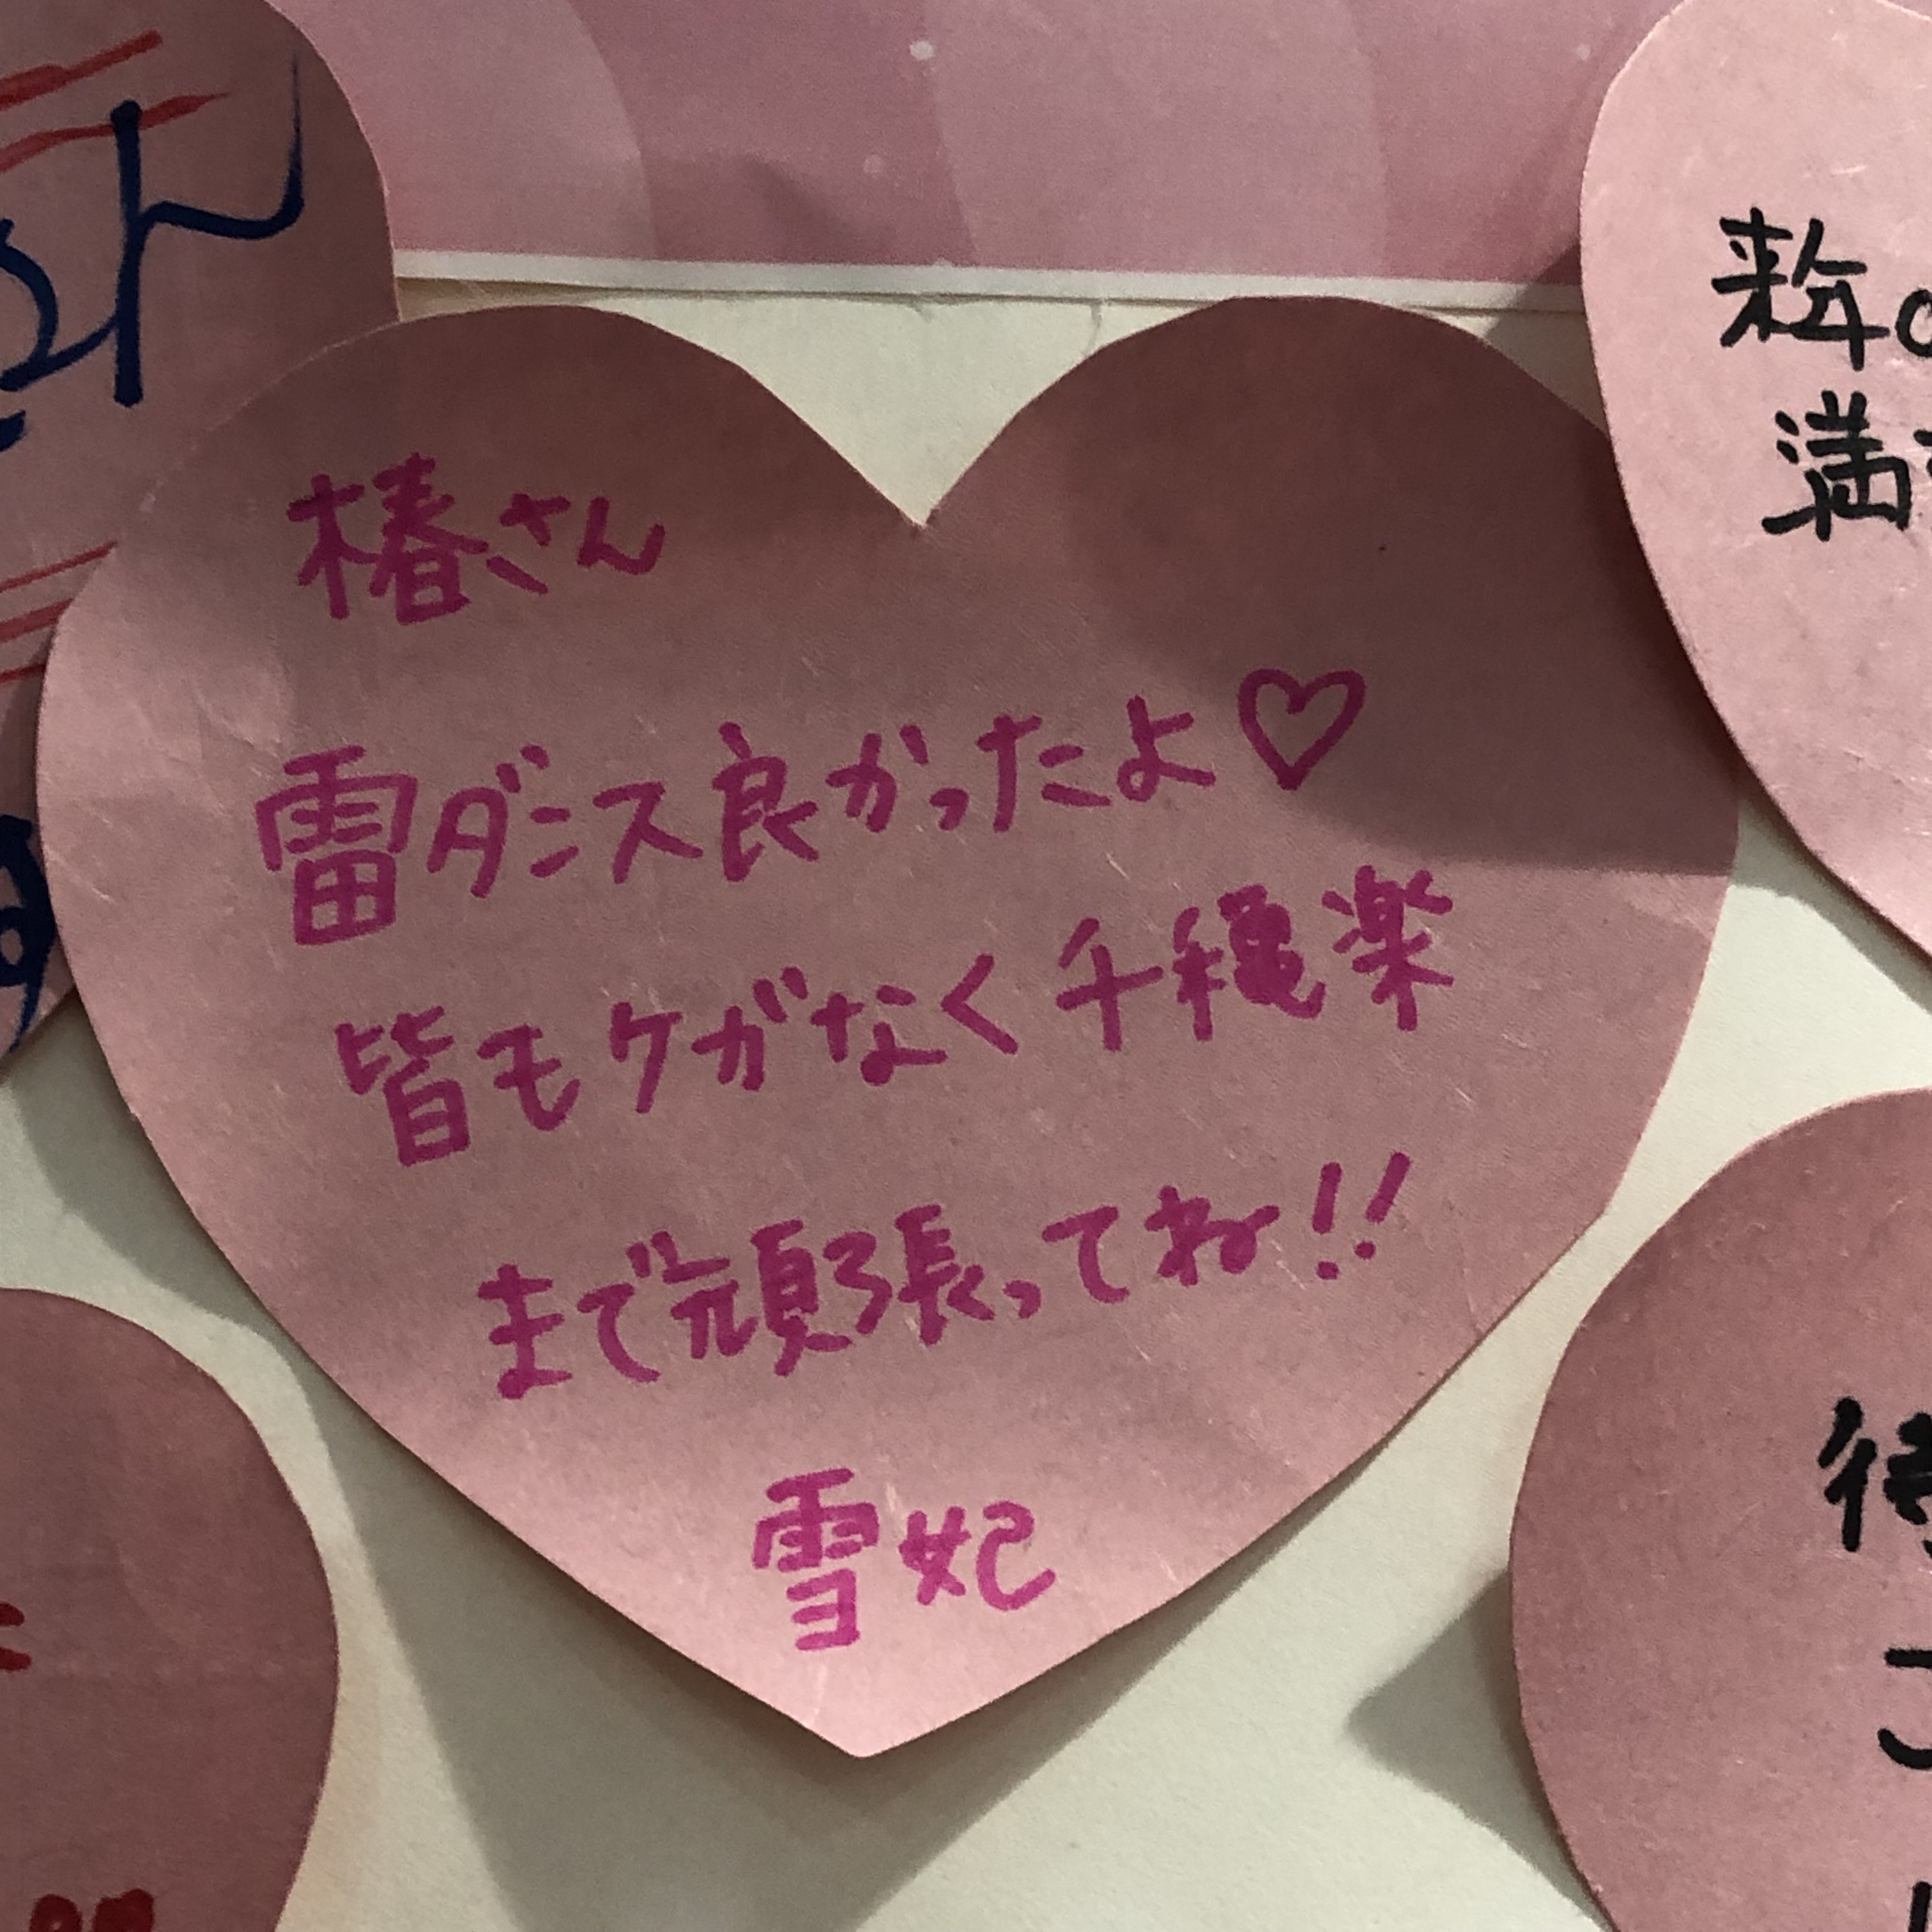 椿さん
雷ダンス良かったよ♡
皆もケガなく千穐楽
まで頑張ってね!!
雪妃
来年の
満